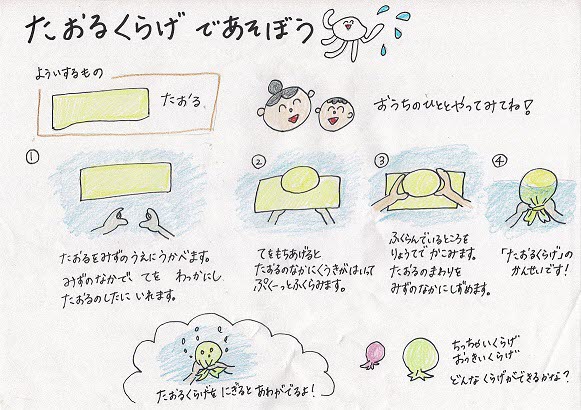 たおるくらげであそぼう
よういするもの
たおる
おうちのひととやってみてね!
①
たおるをみずのうえにうかべます。
みずのなかで、てを わっかにし
たおるのしたに いれます。
②
てをもちあげると
たおるのなかにくうきがはいって
ぷくーっとふくらみます。
③
ふくらんでいるところを
りょうてで かこみます。
たおるのまわりを
みずのなかにしずめます。
④
「たおるくらげ」の
かんせいです!
たおるくらげを にぎると あわがでるよ!
ちっちゃいくらげ
おっきいくらげ
どんな くらげが できるかな?